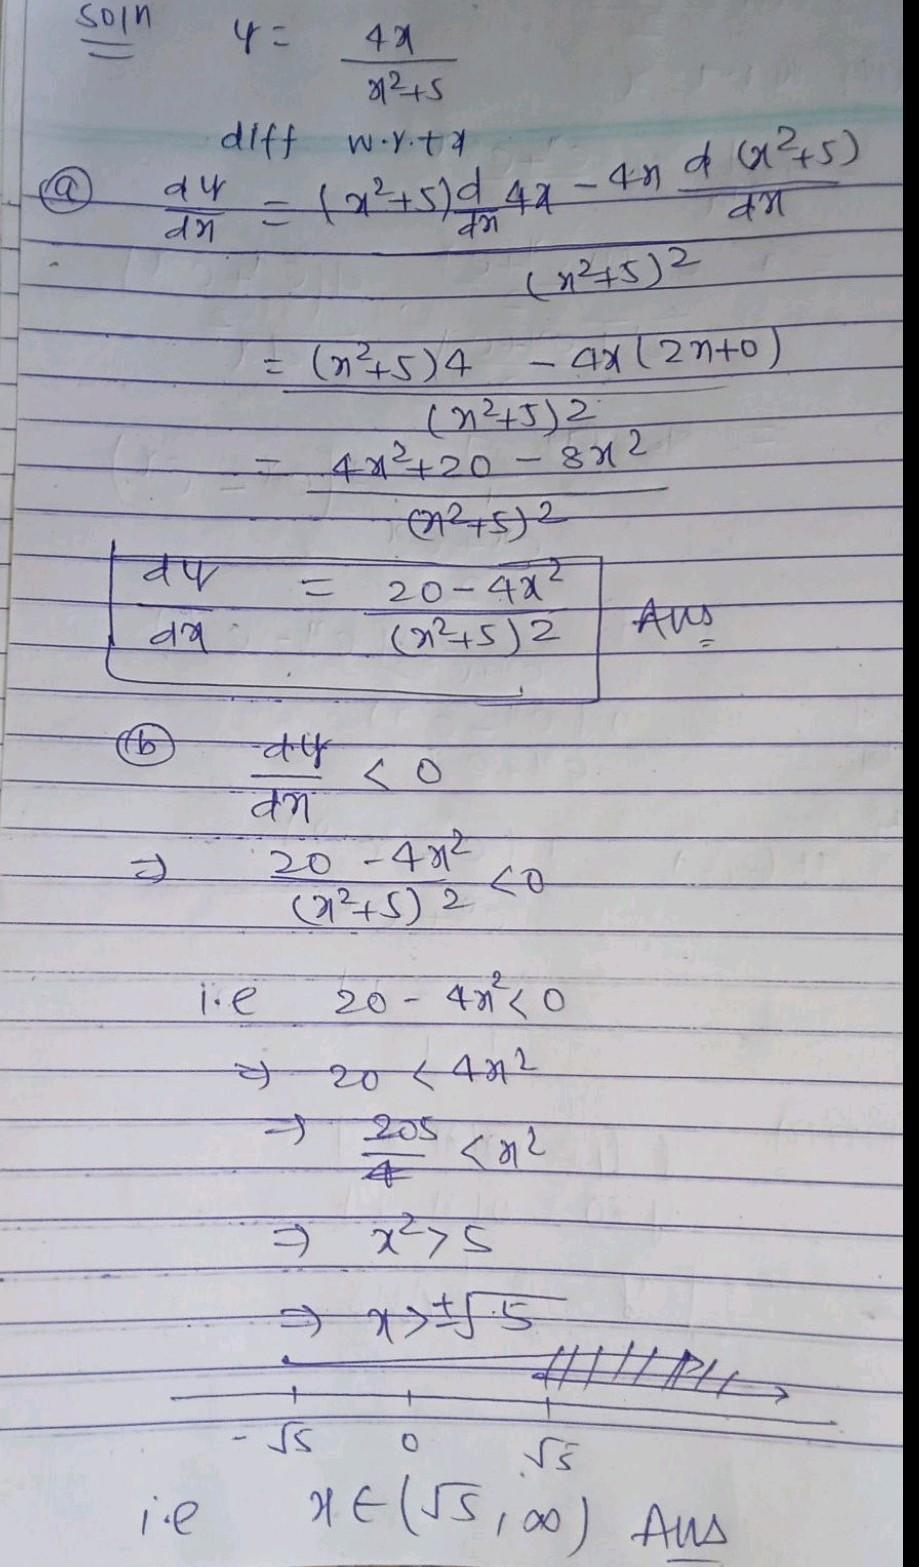 Soln
y = 4x / x²+5
diff w.r.t x
(a) dy/dx = (x²+5) d/dx 4x - 4x d/dx (x²+5) / (x²+5)²
= (x²+5)4 - 4x(2x+0) / (x²+5)²
= 4x²+20 - 8x² / (x²+5)²
dy/dx = 20-4x² / (x²+5)² Ans
(b) dy/dx < 0
⇒ 20-4x² / (x²+5)² < 0
i.e 20 - 4x² < 0
⇒ 20 < 4x²
⇒ 20 5 / 4 < x²
⇒ x² > 5
⇒ x > ±√5
-√5 0 √5
i.e x ∈ (√5, ∞) Ans